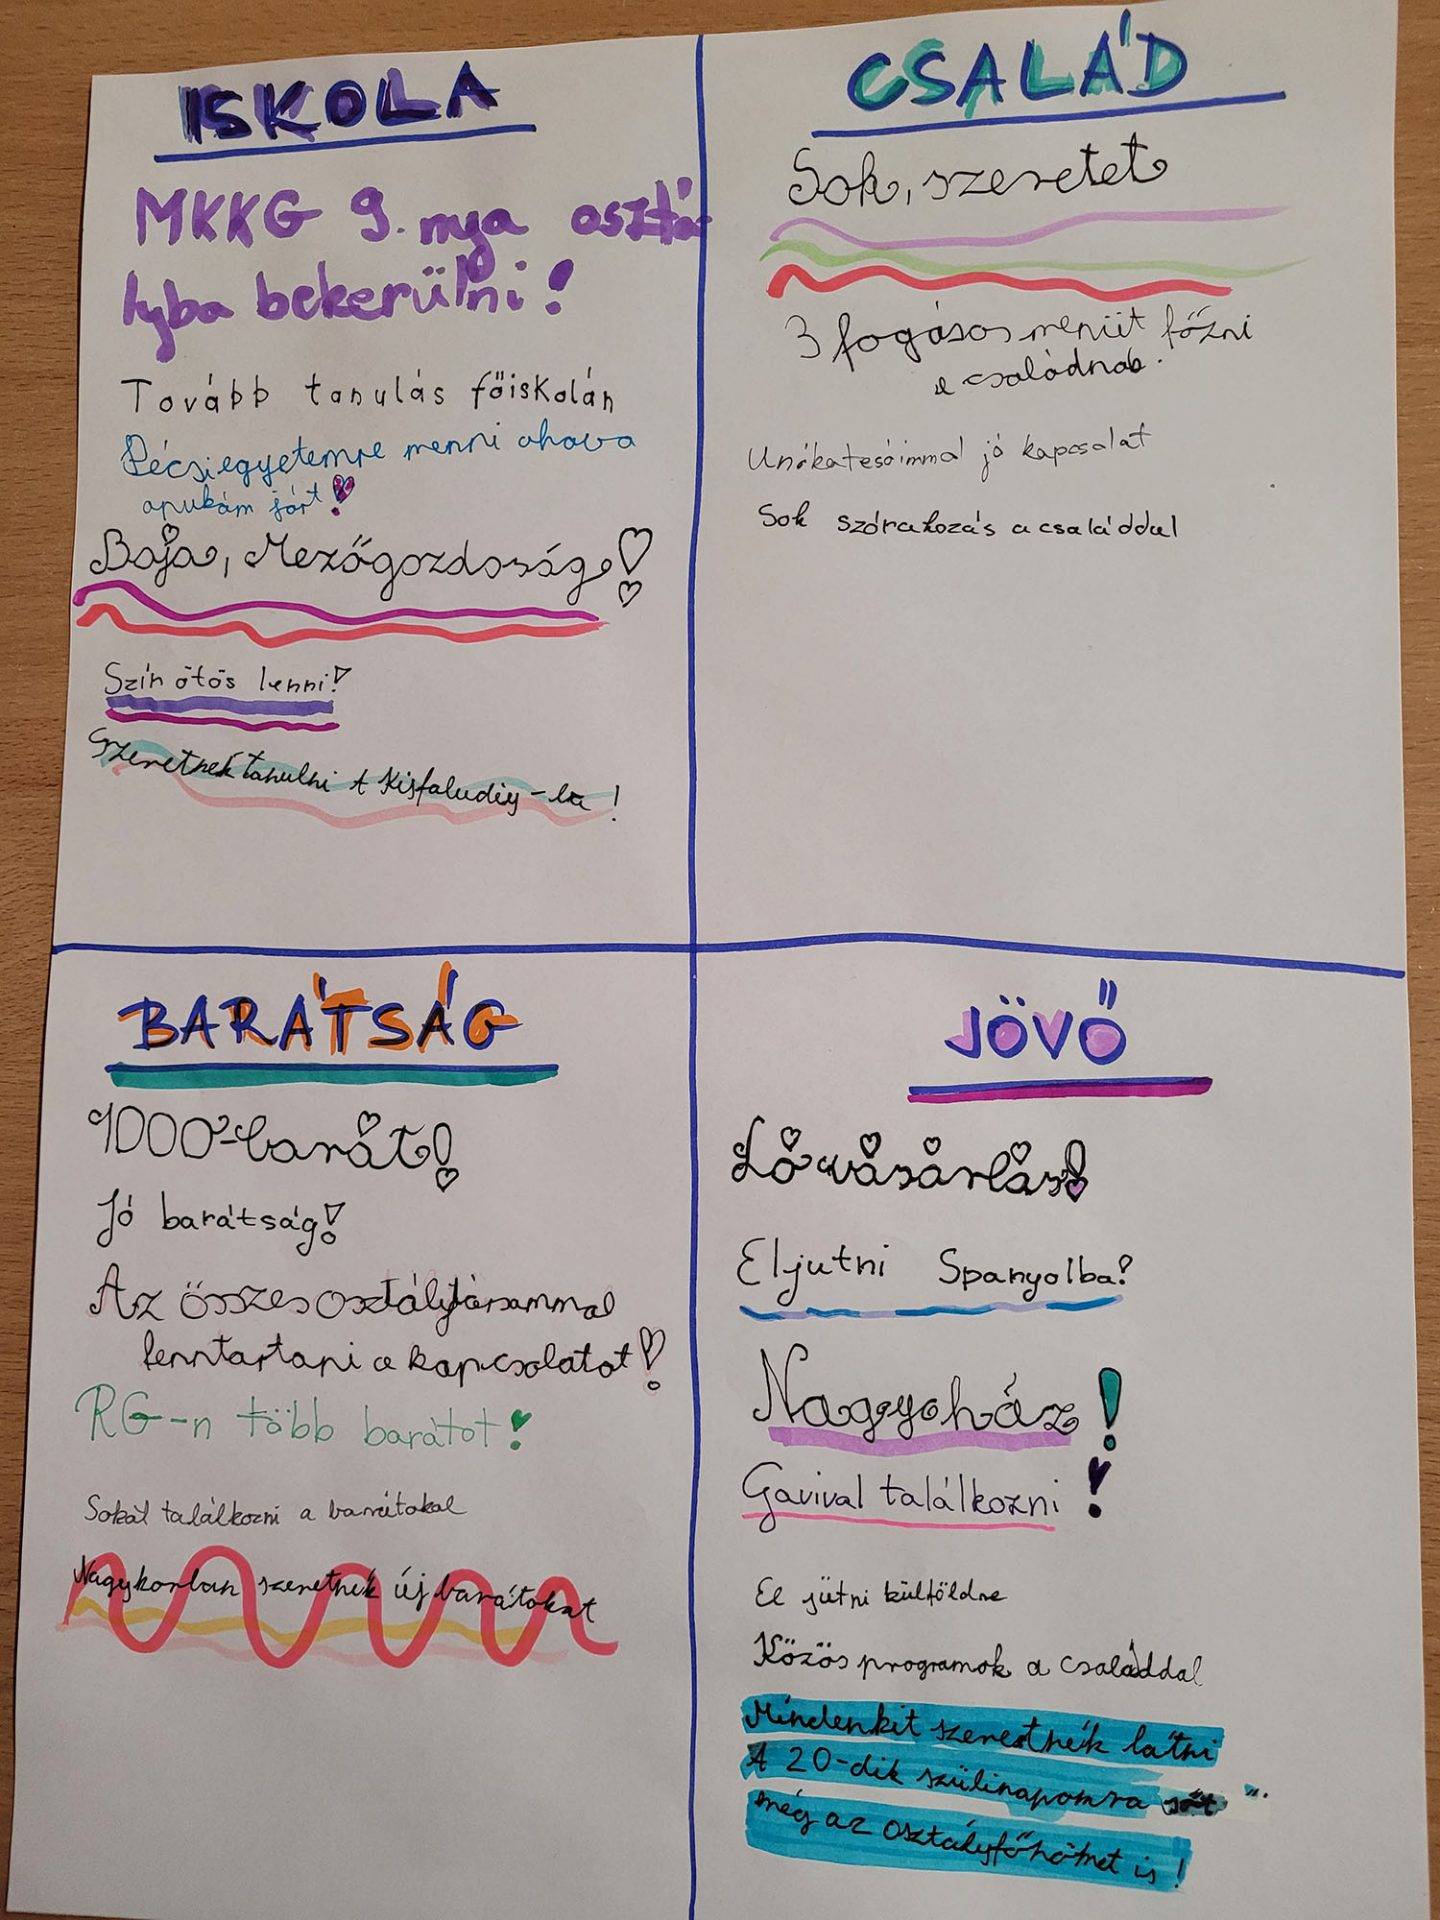 ISKOLA
MKKG 9. nya osztá-
lyba bekerülni!
Tovább tanulás főiskolán
Pécsi egyetemre menni ahova
apukám járt!
Baja, Mezőgazdaság!
Szín ötös lenni!
Szeretnék tanulni A Kisfaludiy-ba!
CSALÁD
Sok, szeretet
3 fogásos menüt főzni
a családnak.
Unokatesóimmal jó kapcsolat
Sok szórakozás a családdal
BARÁTSÁG
1000-barát!
Jó barátság!
Az összes osztálytársammal
fenntartani a kapcsolatot!
RG-n több barátot!
Sokat találkozni a barátokal
Nagykorban szeretnék új barátokat
JÖVŐ
Lóvásárlás!
Eljutni Spanyolba!
Nagyoház!
Gavival találkozni!
El jütni külföldre
Közös programok a családdal
Mindenkit szerestnék látni
A 20-dik szülinapomra sőt
még az osztályfőnömet is!